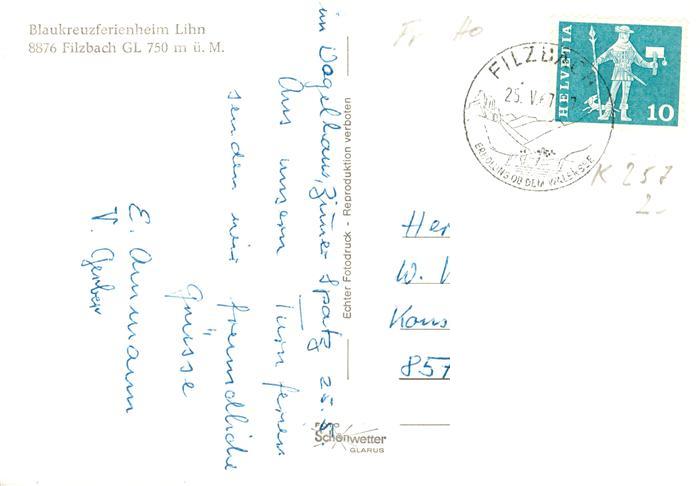 Blaukreuzferienheim Lihn
8876 Filzbach GL 750 m ü. M.
im Vogelhaus, Zimmer Spatz 25. V.
Aus unsern Turnferien
senden wir freundliche
Grüsse
E. Ammann
V. Gerber
Echter Fotodruck - Reproduktion verboten
Foto
Schönwetter
GLARUS
FILZBACH
25. V. 67
ERHOLUNG OB DEM WALENSEE
HELVETIA
10
K 257
2.-
Her
W. V
Kons
857